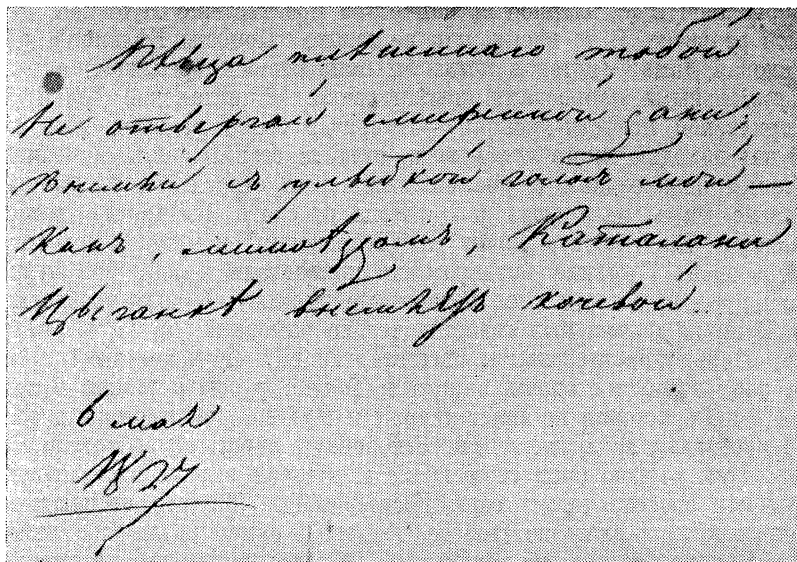 Пѣвца плѣненнаго тобой
Не отвергай смиренной дани;
Внемли съ улыбкой голосъ мой —
Какъ, мимоѣздомъ, Каталани
Цыганкѣ внемлетъ кочевой.
6 мая
1827